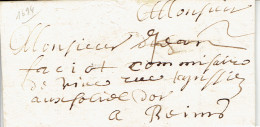 1694
Monsieur
Monsieur Jean
faciot commissaire
de vins rue
aux folie dor
a Reims